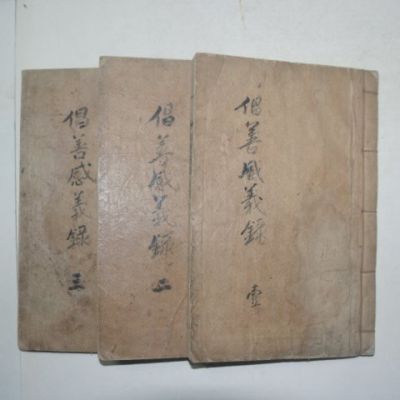 倡善感義錄 壹
倡善感義錄 二
倡善感義錄 三